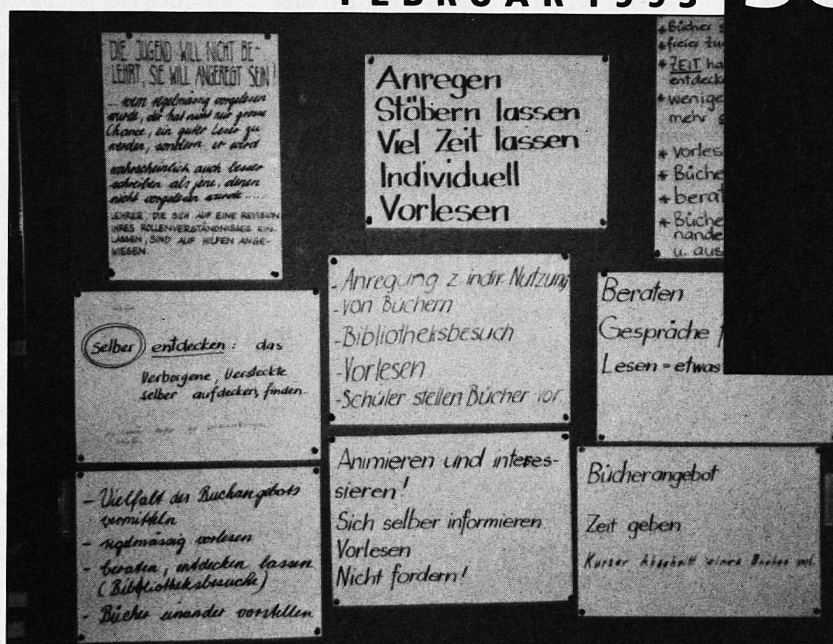 FEBRUAR 1993
DIE JUGEND WILL NICHT BE-
LEHRT, SIE WILL ANGEREGT SEIN!
... wem regelmässig vorgelesen
wurde, der hat nicht nur grosse
Chance, ein guter Leser zu
werden, sondern er wird
wahrscheinlich auch besser
schreiben als jene, denen
nicht vorgelesen wurde ....
LEHRER, DIE SICH AUF EINE REVISION
IHRES ROLLENVERSTÄNDNISSES EIN-
LASSEN, SIND AUF HILFEN ANGE-
WIESEN.
Anregen
Stöbern lassen
Viel Zeit lassen
Individuell
Vorlesen
* Bücher
* freier
* ZEIT ha
entdeck
* wenige
mehr
* vorles
* Büche
* berat
* Büche
nande
u. aus
selber entdecken: das
Verborgene, Versteckte
selber aufdecken, finden
- Anregung z. indiv. Nutzung
- von Büchern
- Bibliotheksbesuch
- Vorlesen
- Schüler stellen Bücher vor
Beraten
Gespräche
Lesen = etwas
- Vielfalt des Buchangebots
vermitteln
- regelmässig vorlesen
- beraten, entdecken lassen
(Bibliotheksbesuche)
- Bücher einander vorstellen
Animieren und interes-
sieren!
Sich selber informieren
Vorlesen
Nicht fordern!
Bücherangebot
Zeit geben
Kurzer Abschnitt eines Buches